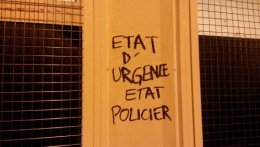 ETAT
D'
URGENCE
ETAT
POLICIER